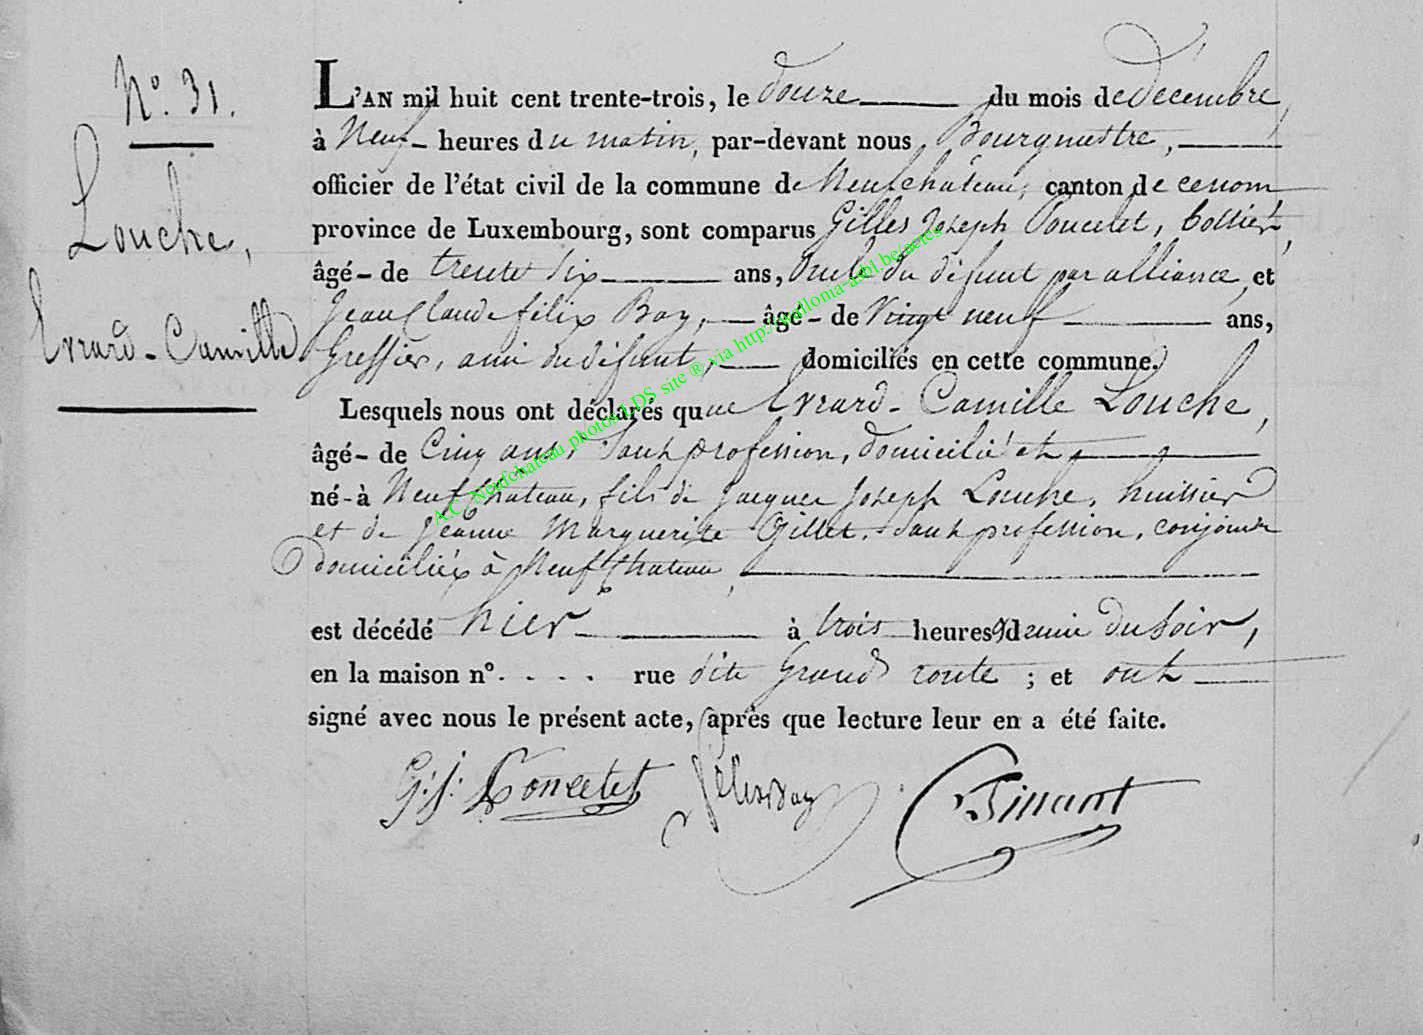 N° 31.
Louche,
Evrard-Camille
L'AN mil huit cent trente-trois, le douze du mois de décembre,
à Neuf heures du matin, par-devant nous Bourgmestre,
officier de l'état civil de la commune de Neufchâteau, canton de ce nom
province de Luxembourg, sont comparus Gilles Joseph Poncelet,
âgé-de trente six ans, oncle du défunt par alliance, et
Jean Claude félix Bay, âgé-de Vingt neuf ans,
Greffier, ami du défunt, domiciliés en cette commune.
Lesquels nous ont déclarés que Evrard-Camille Louche,
âgé-de Cinq ans, sans profession, domicilié et
né-à Neufchateau, fils de Jacques Joseph Louche, huissier
et de Jeanne Marguerite Gillet, sans profession, conjoints
domiciliés à Neufchateau,
est décédé hier à trois heures & demie du soir,
en la maison n° . . . . rue dite Grand route ; et ont
signé avec nous le présent acte, après que lecture leur en a été faite.
G. J. Poncelet
A.C. Neufchateau photos LDS site ® via http://wallonia-asbl.be/actes